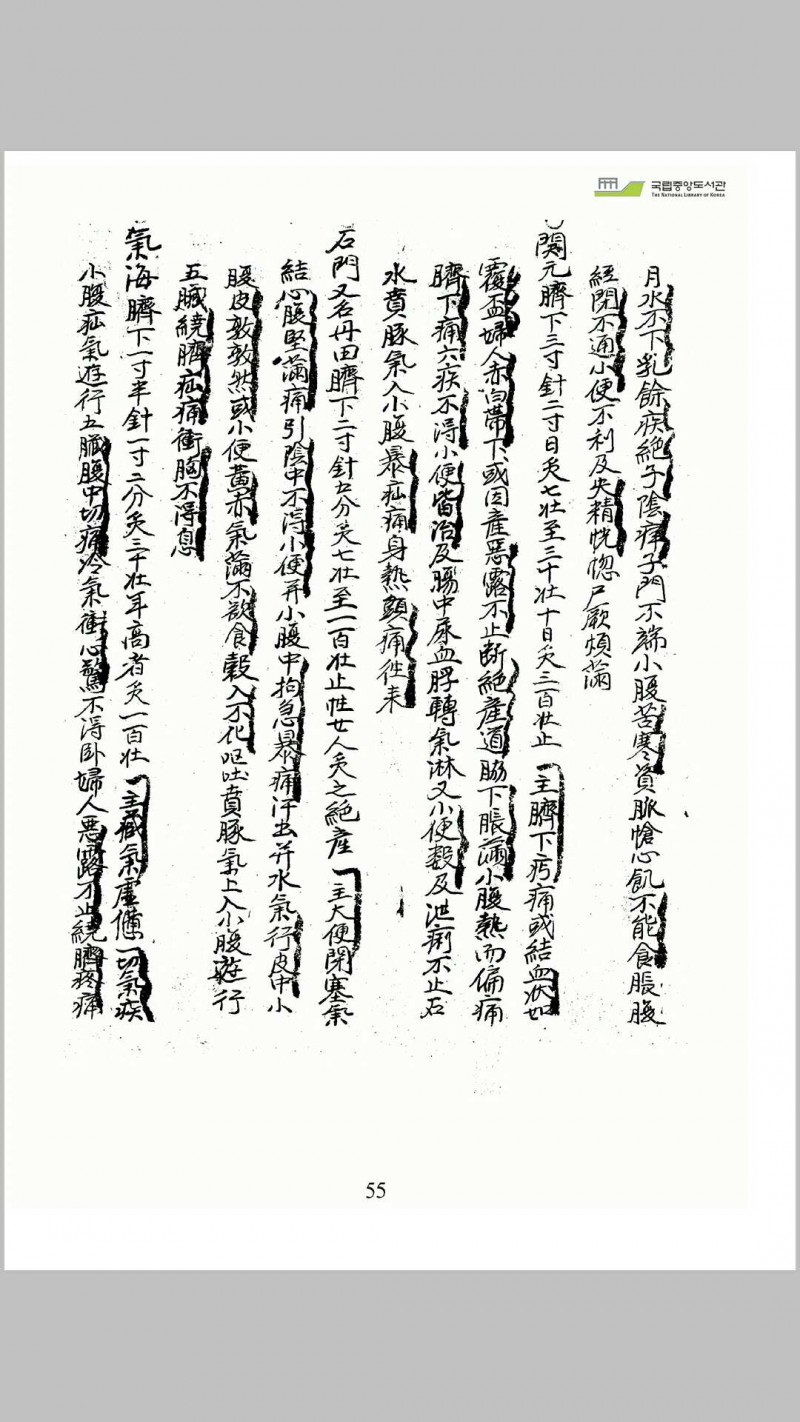 국립중앙도서관
THE NATIONAL LIBRARY OF KOREA
月水不下乳餘疾絶子陰痒子門不端小腹苦寒賁豚愴心飢不能食脹腹
經閉不通小便不利及失精恍惚尸厥煩滿
關元臍下三寸針二寸日灸七壯至三十壯十日灸三百壯止 主臍下㽲痛或結血狀如
覆盃婦人赤白帶下或因產惡露不止斷絶產道脇下脹滿小腹熱而偏痛
臍下痛六疾不得小便皆治及腸中尿血脬轉氣淋又小便數及泄痢不止石
水賁豚氣入小腹暴疝痛身熱頭痛徃来
石門又名丹田臍下二寸針五分灸七壯至一百壯止性女人灸之絶產 主大便閉塞氣
結心腹堅滿痛引陰中不得小便并小腹中拘急暴痛汗出并水氣行皮中小
腹皮敦敦然或小便黃赤氣滿不欲食穀入不化嘔吐賁豚氣上入小腹遊行
五臟繞臍疝痛衝胸不得息
氣海臍下一寸半針一寸二分灸三十壯年高者灸一百壯 主臟氣虛憊一切氣疾
小腹疝氣遊行五臟腹中切痛冷氣衝心驚不得臥婦人惡露不止繞臍疼痛
55